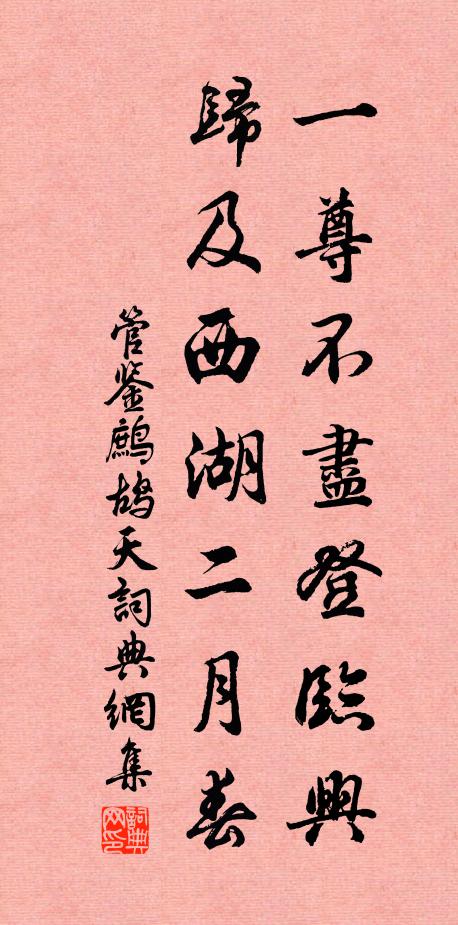 一尊不盡登臨興
歸及西湖二月春
管鉴鷓鴣天詞典網集
詞典网印